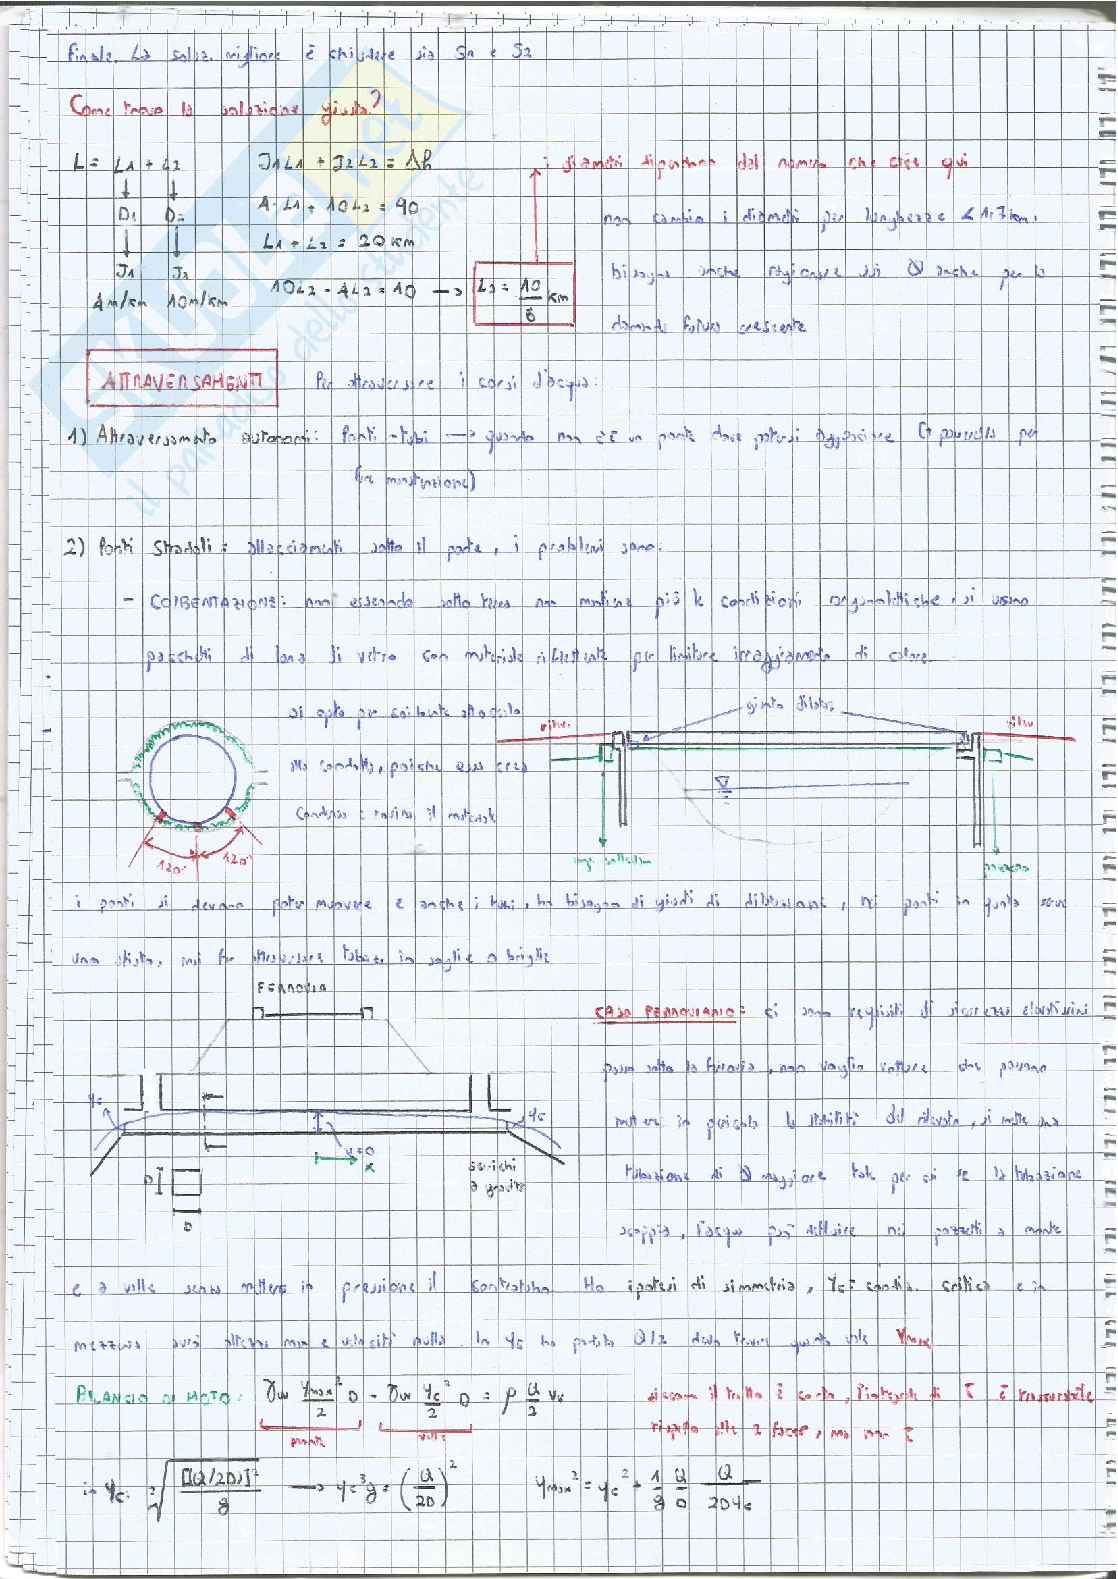 finale. La soluz. migliore è chiudere sia S1 e S2
Come trovo la soluzione giusta?
L = L1 + L2
D1 D2
J1 J2
4m/km 10m/km
J1L1 + J2L2 = Δh
4·L1 + 10L2 = 90
L1 + L2 = 20 km
10L2 - 4L2 = 10 → L2 = 10/6 km
i diametri dipendono dal numero che esce qui
non cambio i diametri per lunghezze < 1,7 km,
bisogna anche ragionare sui Ø anche per la
domanda futura crescente
ATTRAVERSAMENTI Per attraversare i corsi d'acqua:
1) Attraversamento autonomi: Ponti-tubi → quando non c'è un ponte dove potersi agganciare (+ passerella per
fare manutenzione)
2) Ponti Stradali: allacciamenti sotto il ponte, i problemi sono:
- COIBENTAZIONE: non essendo sotto terra non mantiene più le condizioni organolettiche, si usano
pacchetti di lana di vetro con materiale riflettente per limitare irraggiamento di calore
si opta per coibente staccato
alla condotta, poiché essa crea
condensa e rovina il materiale
120° 120°
rilev. giunto dilataz. rilev.
pozzetto
i ponti si devono poter muovere e anche i tubi, ho bisogno di giunti di dilatazione, nei ponti in quota serve
uno sfiato, mai far attraversare tubaz. in soglie o briglie
FERROVIA
yc yc
v=0
x
D
D
scarichi
a gravità
CASO FERROVIARIO: ci sono requisiti di sicurezza elevatissimi
passo sotto la ferrovia, non voglio rotture che possano
mettere in pericolo la stabilità del rilevato, si mette una
tubazione di Ø maggiore tale per cui se la tubazione
scoppia, l'acqua può defluire nei pozzetti a monte
e a valle senza mettere in pressione il controtubo. Ho ipotesi di simmetria, yc = condiz. critica e in
mezzeria avrò altezza max e velocità nulla. In yc ho portata Q/2 devo trovare quanto vale ymax
BILANCIO DI MOTO: γw ymax²/2 D - γw yc²/2 D = ρ Q/2 vc
monte valle
siccome il tratto è corto, l'integrale di τ è trascurabile
rispetto alle 2 forze, ma non τ
in yc = ∛([(Q/2D)]²/g) → yc³g = (Q/2D)² ymax² = yc² + 1/g Q/D Q/2Dyc